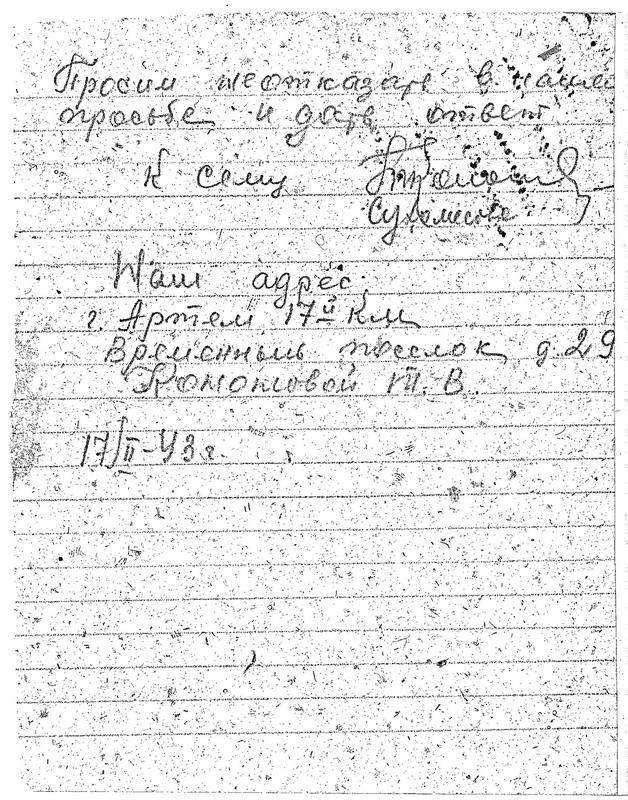 Просим неотказать в наше
просьбе и дать ответ
К сему
Наш адрес.
г. Артем 17й км
Временный поселок д. 29
Т. В.
17/II-43 г.